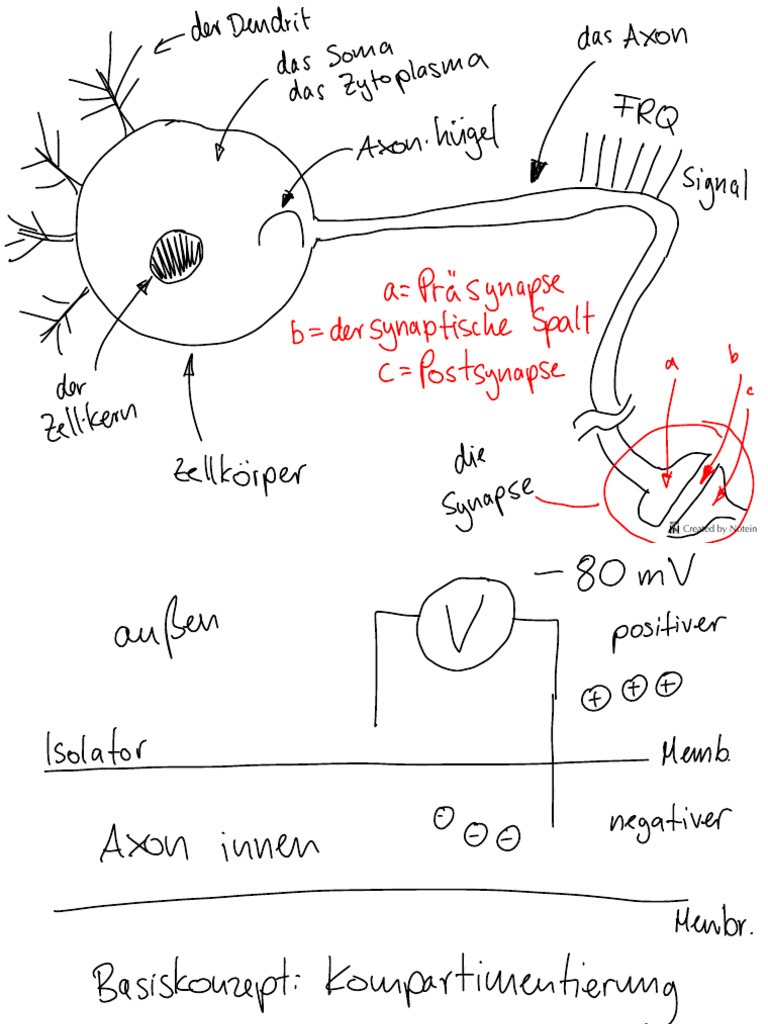 der Dendrit
das Soma
das Zytoplasma
das Axon
Axon-hügel
FRQ
Signal
a=Präsynapse
b=der synaptische Spalt
c=Postsynapse
a
b
c
der
Zell-kern
Zellkörper
die
Synapse
Created by Notein
- 80 mV
außen
V
positiver
+ + +
Isolator
Memb.
Axon innen
- - -
negativer
Membr.
Basiskonzept: Kompartimentierung